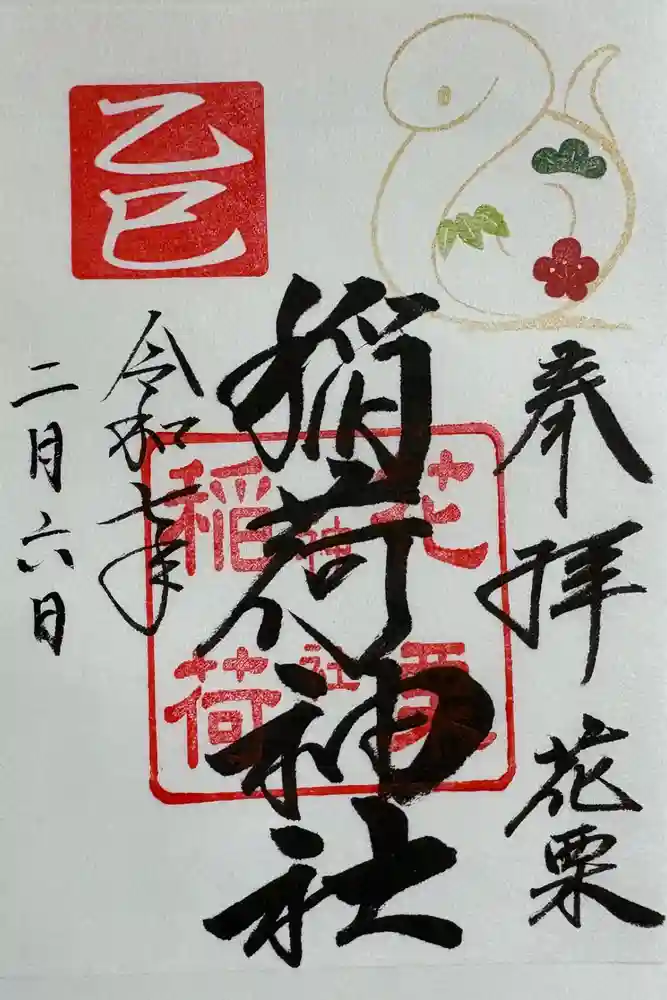 奉拝 花栗
稲荷神社
令和七年
二月六日
乙巳
花栗
神社
稲荷